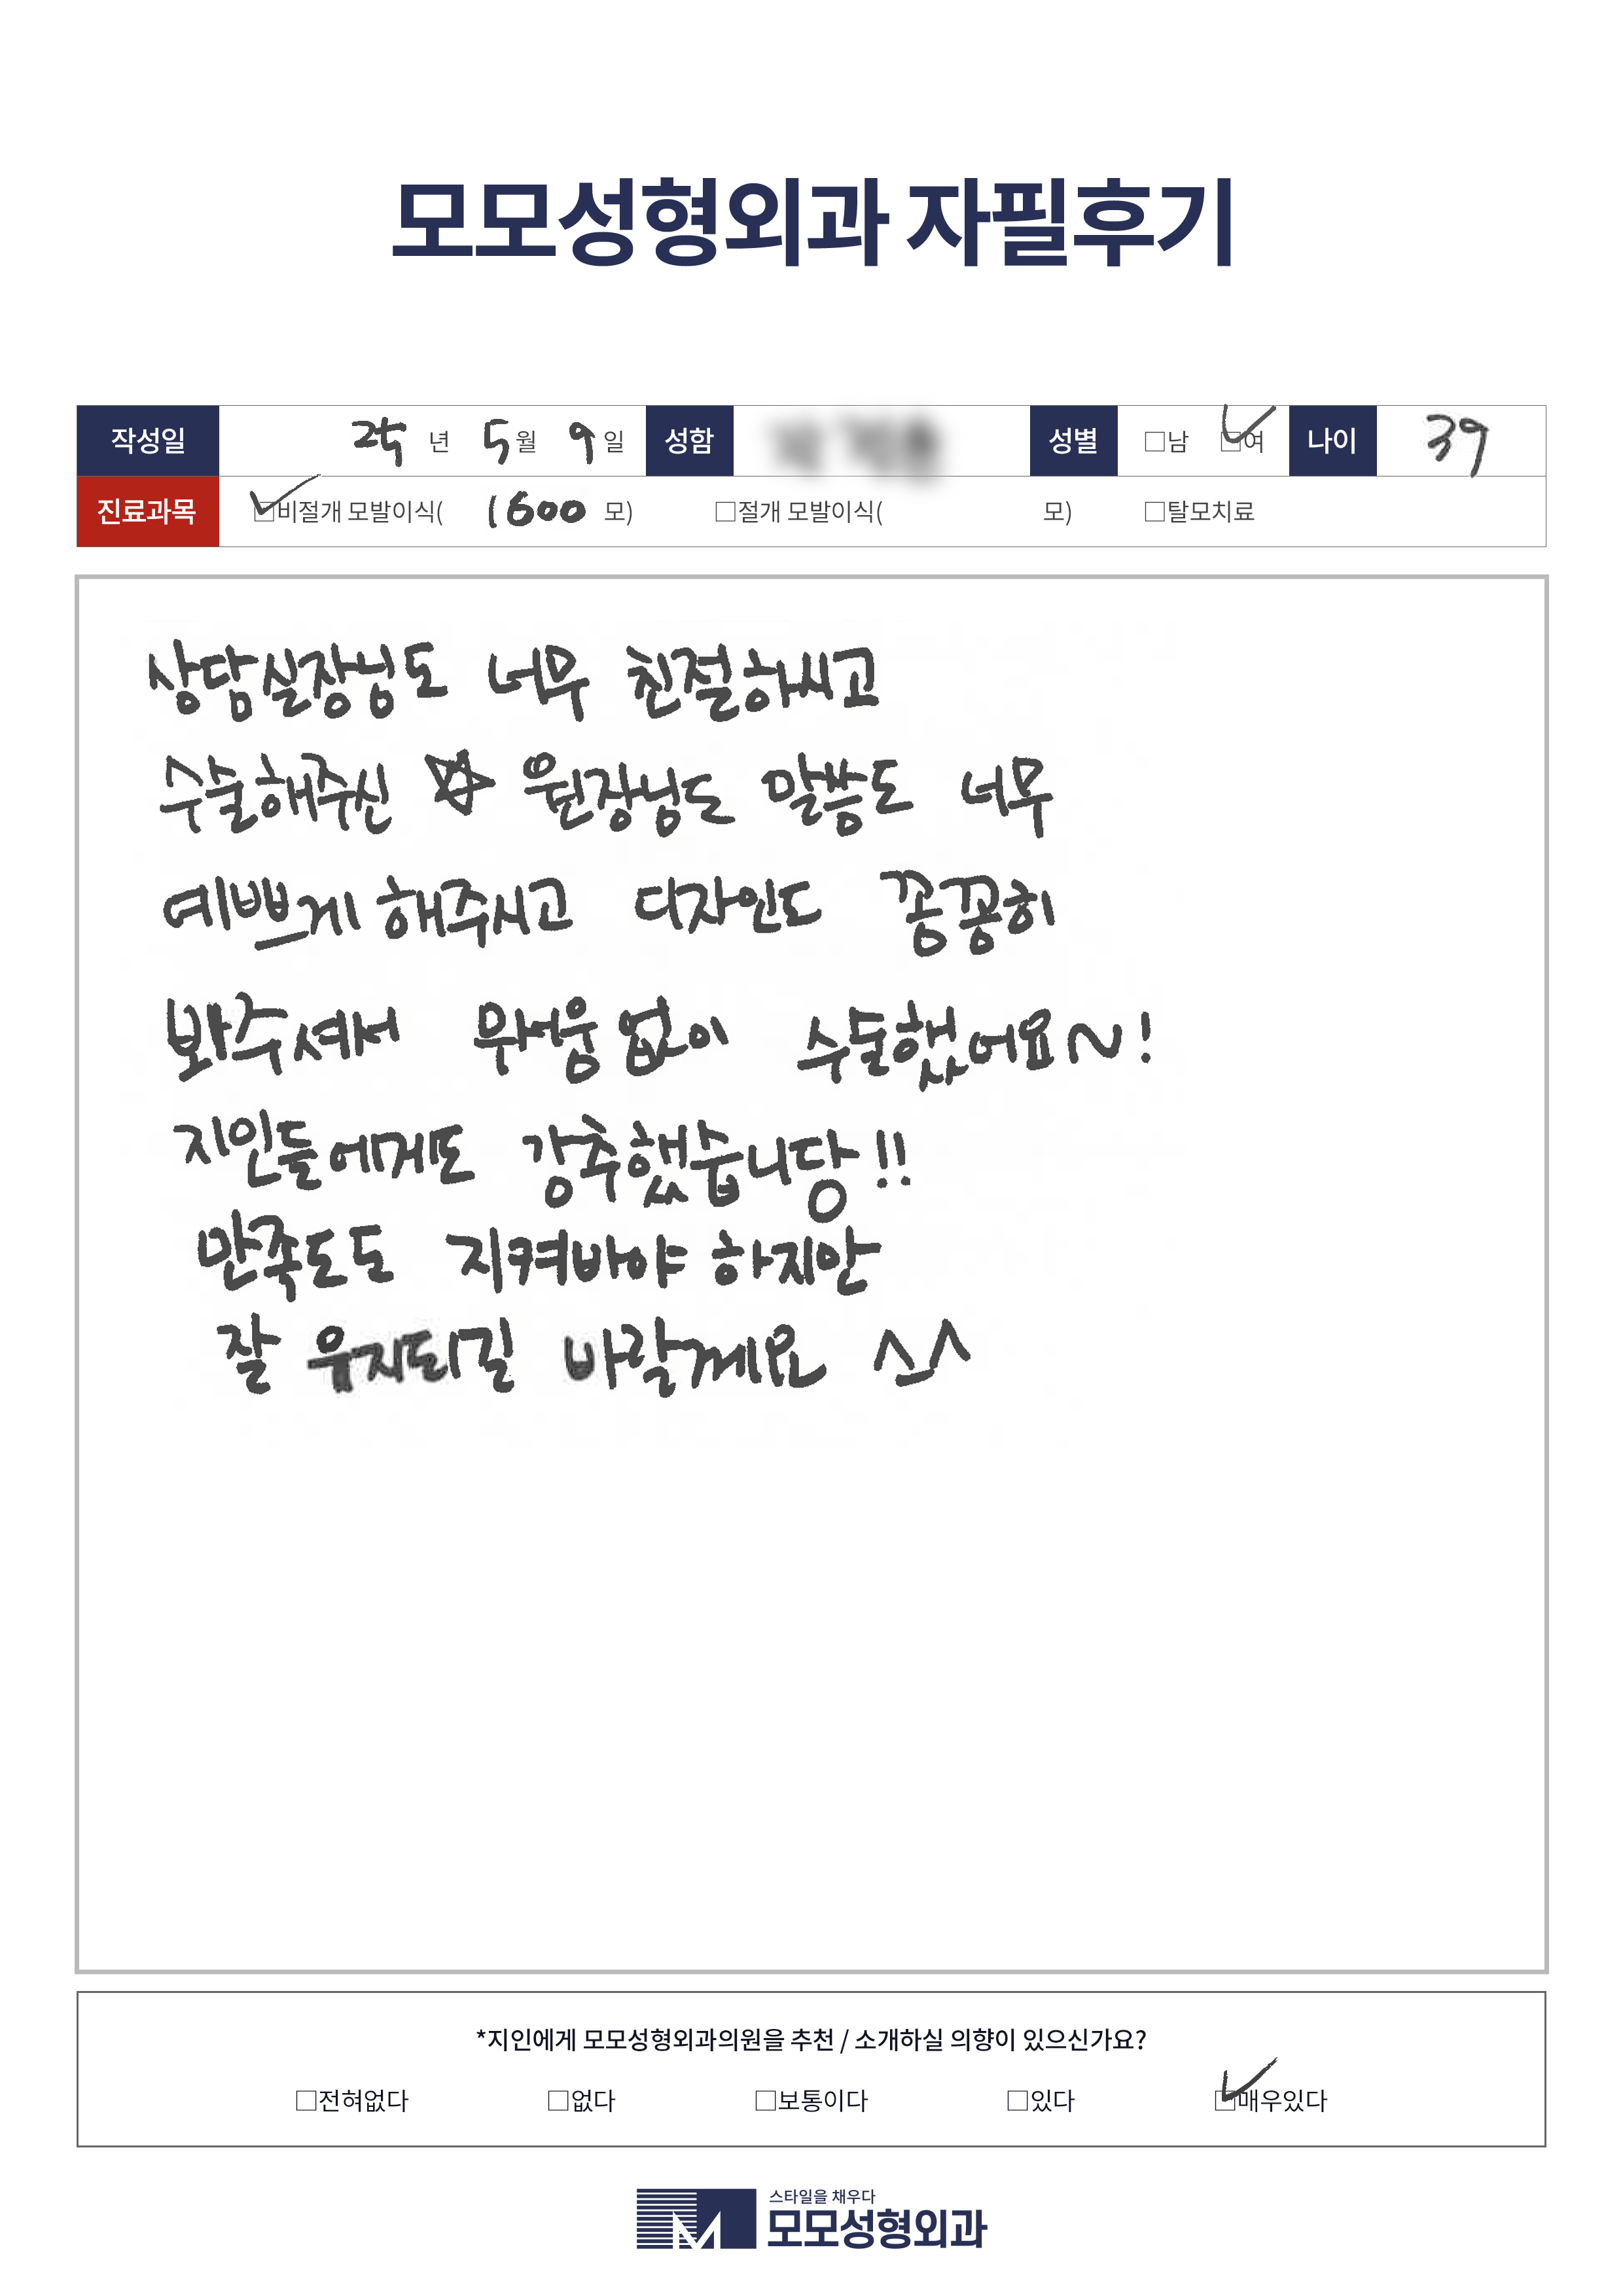 모모성형외과 자필후기
작성일 25년 5월 9일 성함 성별 □남 □여 나이 39
진료과목 □비절개 모발이식( 1600 모) □절개 모발이식( 모) □탈모치료
상담실장님도 너무 친절하시고
수술해주신 ☆ 원장님도 말씀도 너무
예쁘게 해주시고 디자인도 꽁꽁히
봐주셔서 무서움없이 수술했어요~!
지인들에게도 강추했습니당!!
만족도도 지켜바야 하지만
잘 유지되길 바랄께요 ^_^
*지인에게 모모성형외과의원을 추천 / 소개하실 의향이 있으신가요?
□전혀없다 □없다 □보통이다 □있다 □매우있다
스타일을 채우다
모모성형외과